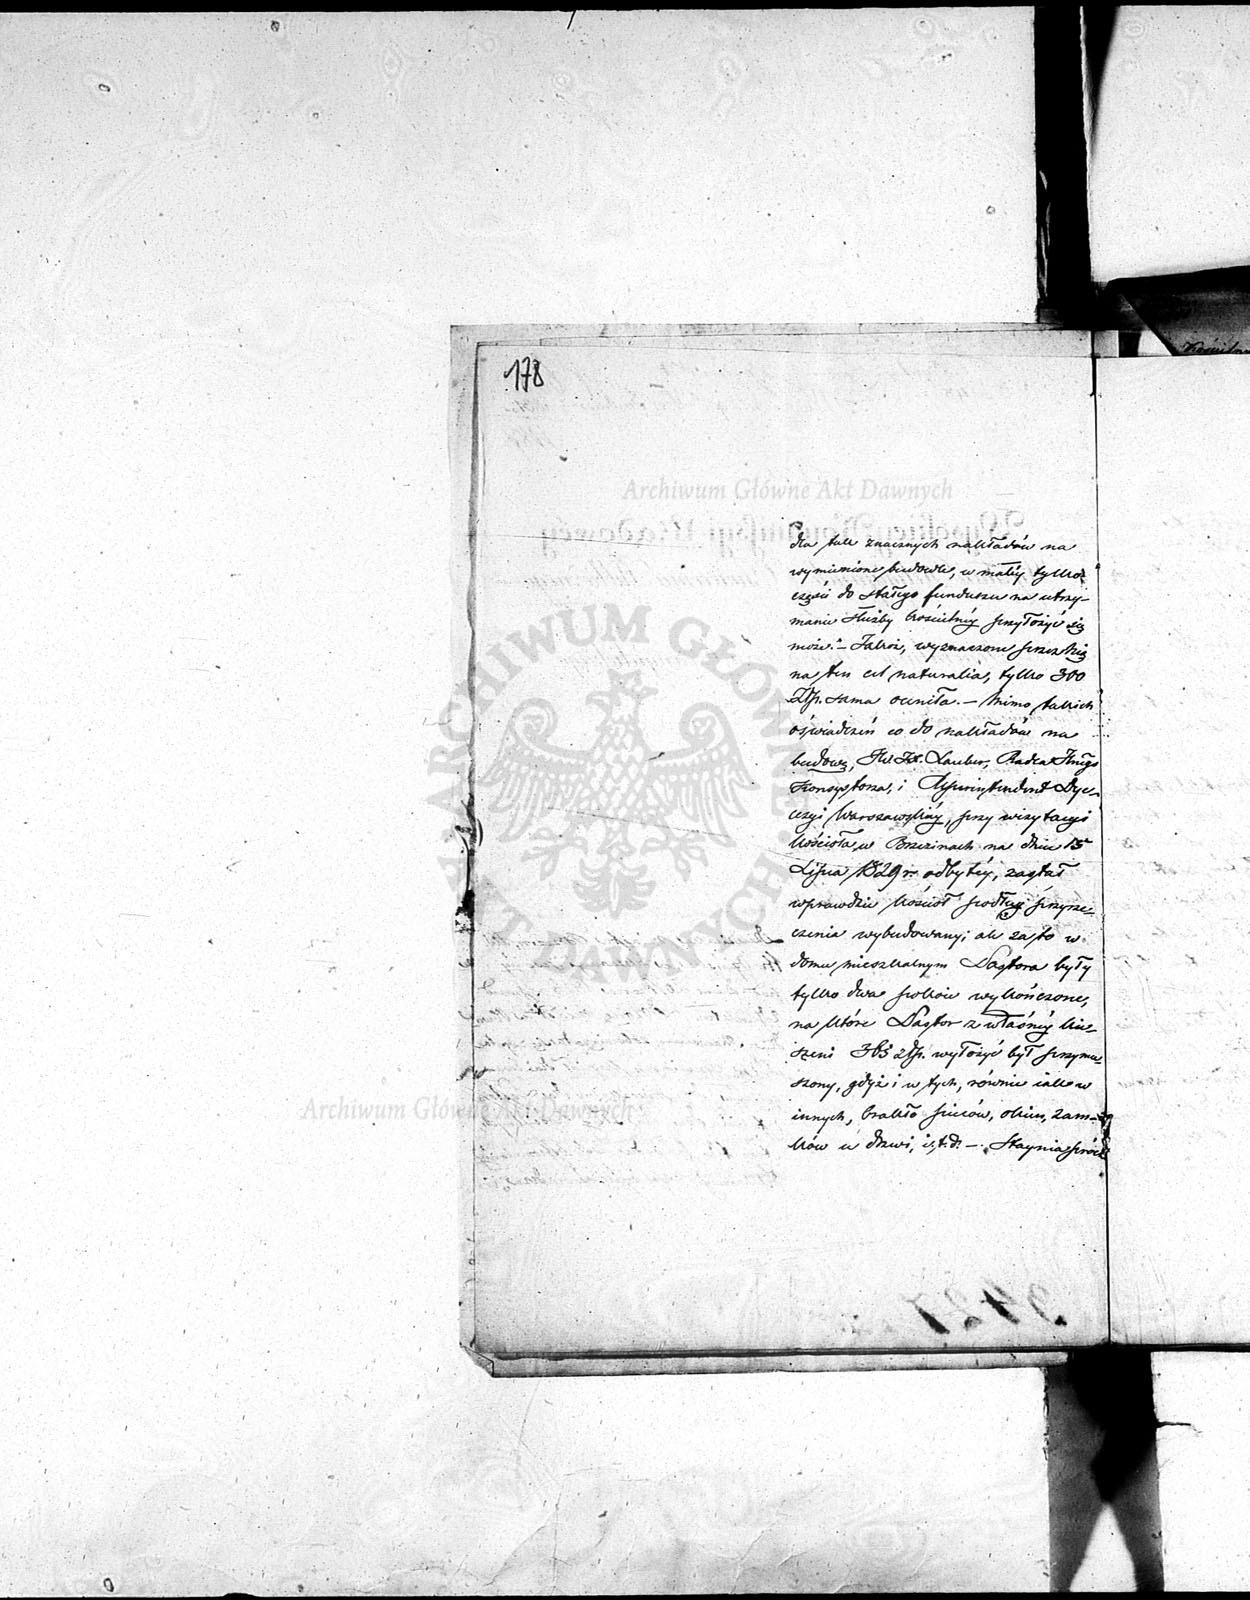 178
Archiwum Główne Akt Dawnych
dla tak znacznych nakładów na
wymienione budowle, w małéy tylko
części do stałego funduszu na utrzy-
manie służby kościelnéy przyłożyć się
może." – Jakoż, wyznaczone przez Nię
na ten cel naturalia, tylko 300
Złp. sama oceniła. – Mimo takich
oświadczeń co do nakładów na
budowę, Lauber, Radca
Konsystorza, i Superintendent Dye-
cezyi Warszawskiéy, przy wizytacyi
kościoła, w Brzezinach na dniu 15
Lipca 1829 r. odbytéy, zastał
wprawdzie kościół podług przyrze-
czenia wybudowany; ale za to w
domu mieszkalnym Pastora były
tylko dwa pokoie wykończone,
na które Pastor z własnéy kie-
szeni złp. wyłożyć był przymu-
szony, gdyż i w tych, równie iak w
innych, brakło pieców, okien, zam-
ków u drzwi, i, t. d. – Staynia
Archiwum Główne Akt Dawnych
ARCHIWUM GŁÓWNE AKT DAWNYCH